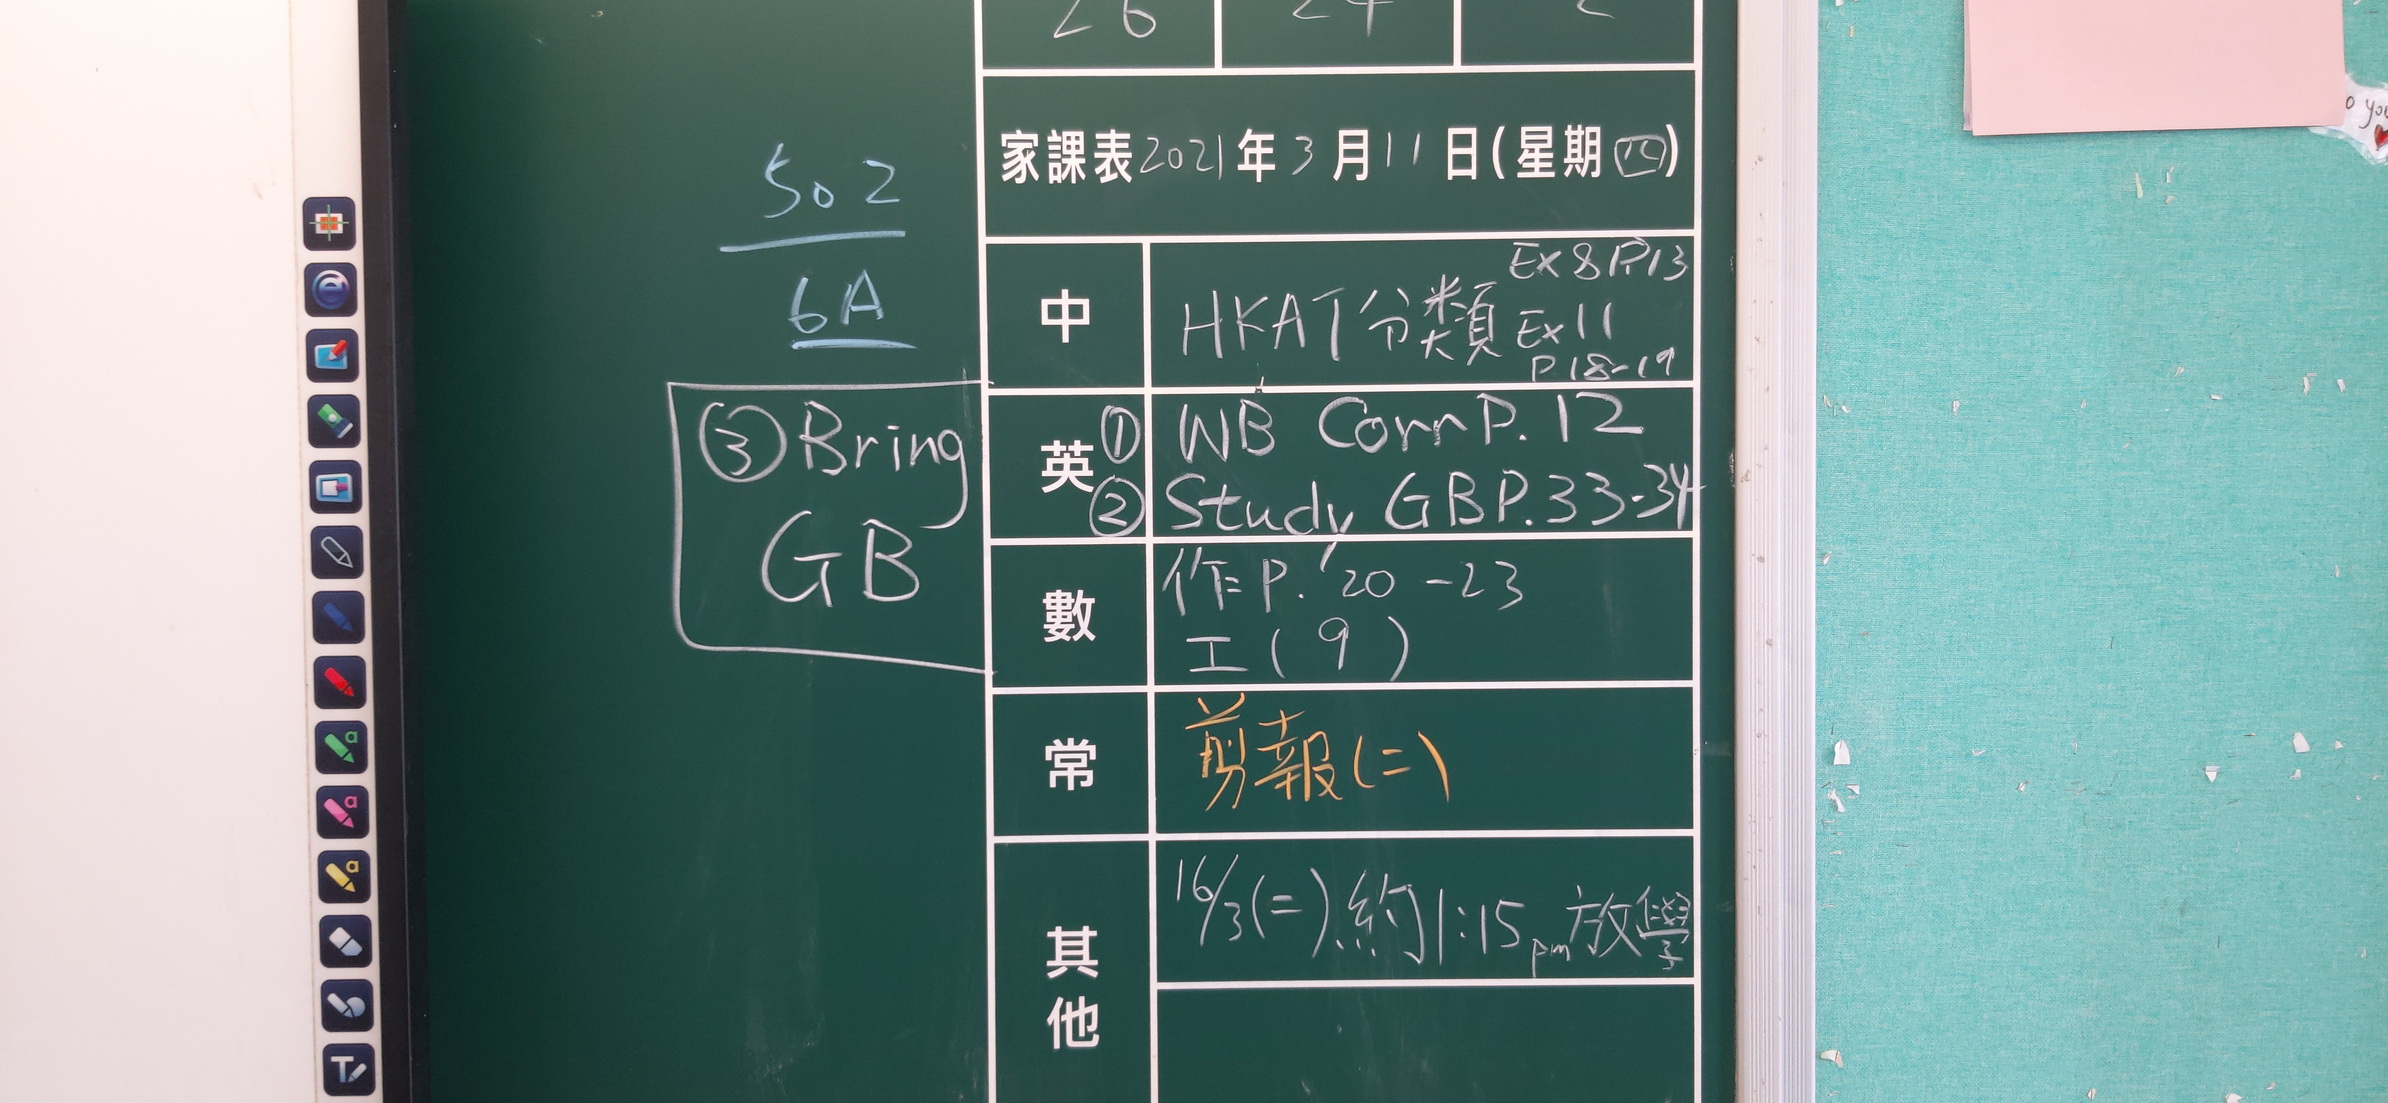 26
24
家課表2021年3月11日(星期四)
502
6A
中
HKAT分類
Ex 8 P.13
Ex 11
P.18-19
英
① WB Corr P. 12
② Study GB P. 33-34
③ Bring
GB
數
作 P. 20 - 23
工 ( 9 )
常
剪報(二)
其他
16/3(二).約1:15pm放學
o you
T